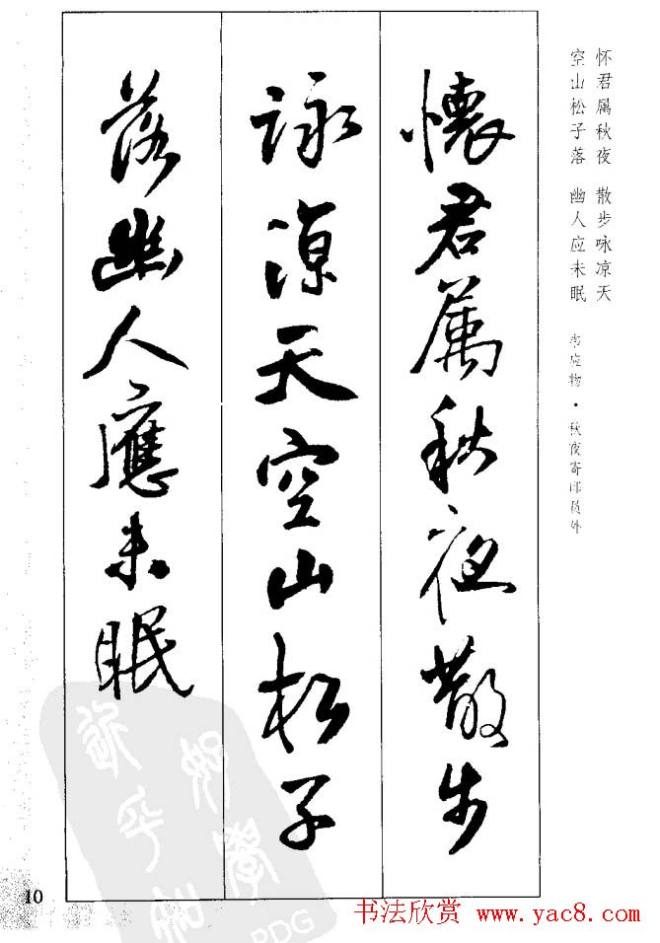 懷君属秋夜散步
詠涼天空山松子
落幽人應未眠
怀君属秋夜 散步咏凉天
空山松子落 幽人应未眠
韦应物·秋夜寄邱员外
10
书法欣赏 www.yac8.com
PDG